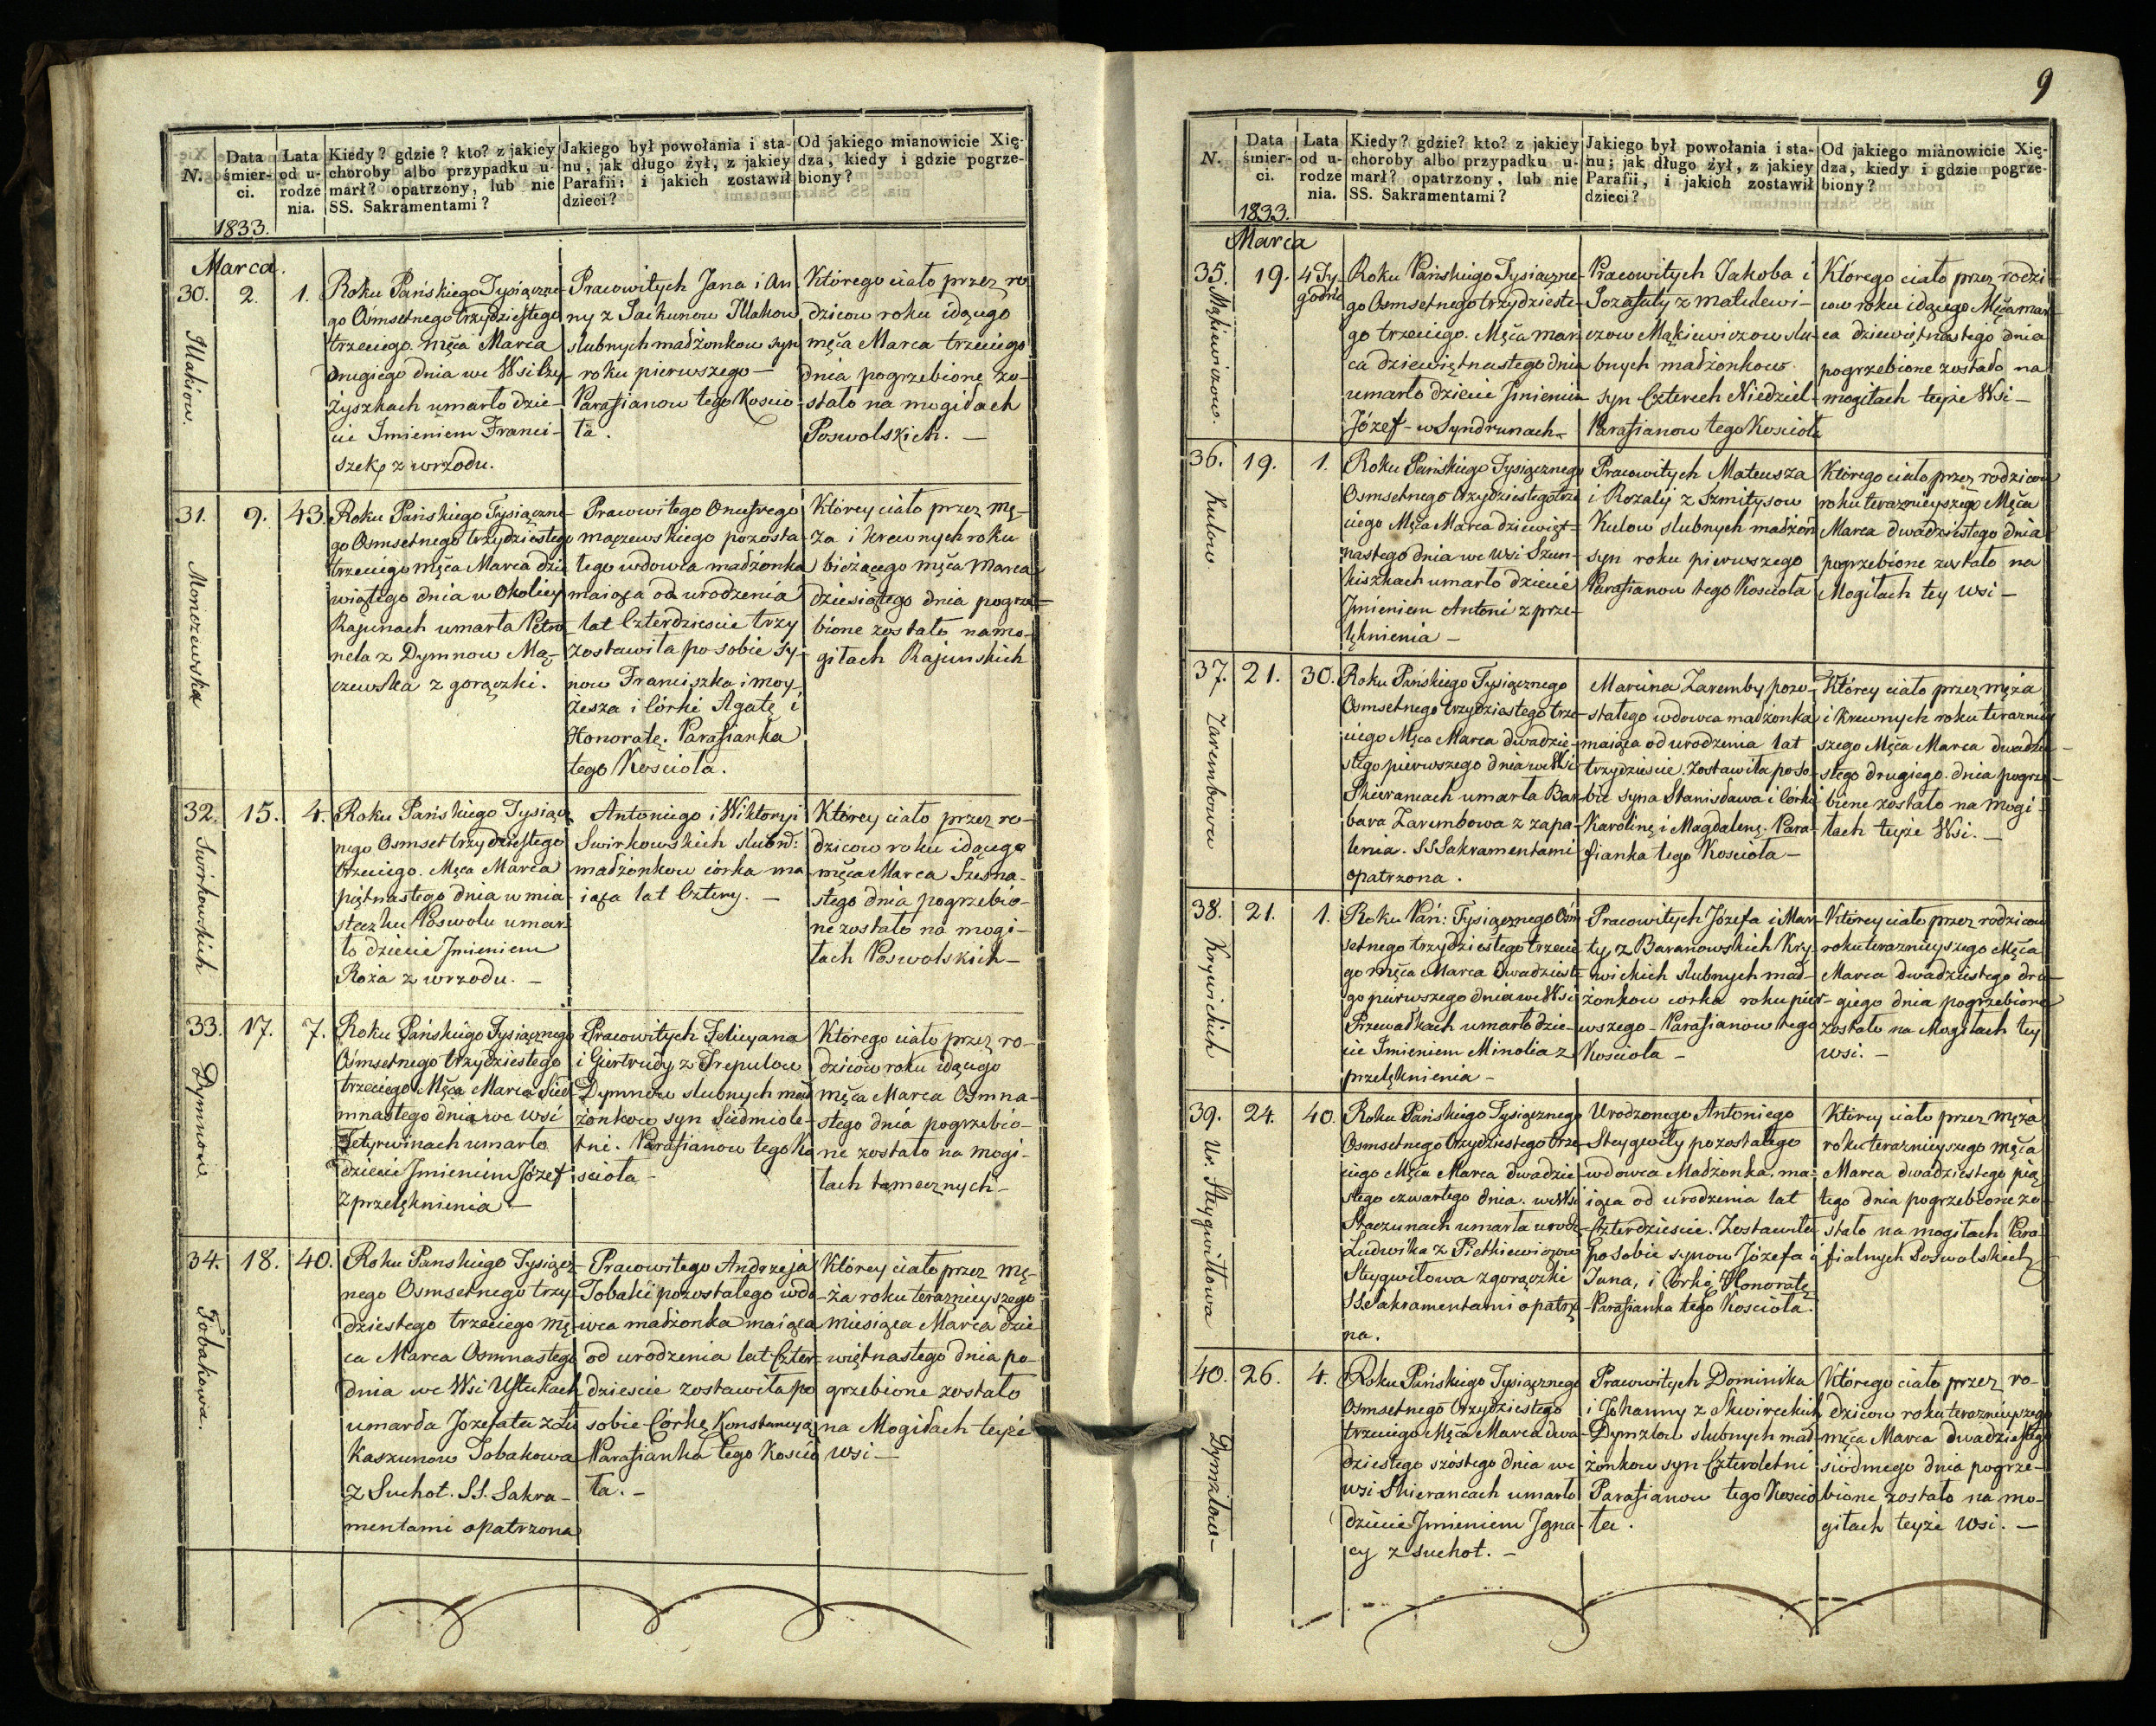 9
N.
Data śmier-ci.
Lata od u-rodze nia.
Kiedy? gdzie? kto? z jakiey
choroby albo przypadku u-
marł? opatrzony, lub nie
SS. Sakramentami?
Jakiego był powołania i sta-
nu, jak długo żył, z jakiey
Parafii: i jakich zostawił
dzieci?
Od jakiego mianowicie Xię-
dza, kiedy i gdzie pogrze-
biony?
1833.
Marca.
30. 2. 1.
Roku Pańskiego Tysiączne-
go Ośmsetnego trzydziestego
trzeciego męca Marca
drugiego dnia we Wsi
żyszkach umarło dzie-
cie Imieniem Franci-
szek z wrzodu.
Pracowitych Jana i An
ny z Saikunow Illakow
slubnych małżonkow syn
roku pierwszego —
Parafianow tego Koscio-
ła.
Którego ciało przez ro
dzicow roku idącego
męca Marca trzeciego
dnia pogrzebione zo-
stało na mogiłach
Poswolskich. —
31. 9. 43.
Monczewska
Roku Pańskiego Tysiączne-
go Osmsetnego trzydziestego
trzeciego męca Marca dzie
wiątego dnia w Okolicy
Rajunach umarła Petro
nela z Dymnow Mą-
czewska z gorączki.
Pracowitego Onufrego
mączewskiego pozosta-
łego wdowca małżonka
maiąca od urodzenia
lat Czterdziescie trzy
zostawiła po sobie Sy-
now Franciszka i moy-
żesza i Córki Agatę i
Honoratę. Parafianka
tego Kosciola.
Którey ciało przez mę-
ża i krewnych roku
bieżącego męca marca
dziesiątego dnia pogrze-
bione zostało na mo-
giłach Rajunskich
32. 15. 4.
Swirkowskich
Roku Pańskiego Tysiącz
nego Osmset trzydziestego
trzeciego. Męca Marca
piętnastego dnia w mia-
steczku Poswolu umar
ło dziecie Imieniem
Roża z wrzodu. —
Antoniego i Wiktoryi
Swirkowskich slubn:
małżonkow córka ma
iąca lat Cztery. —
Którey ciało przez ro-
dzicow roku idącego
męca Marca Szesna-
stego dnia pogrzebio-
ne zostało na mogi-
łach Poswolskich —
33. 17. 7.
Dymnow
Roku Pańskiego Tysiącznego
Ośmsetnego trzydziestego
trzeciego Męca Marca Sied
mnastego dnia we wsi
Tetyrwinach umarło
dziecie Imieniem Józef
z przelęknienia —
Pracowitych Felicyana
i Giertrudy z Trepulow
Dymnow slubnych małż
żonkow syn Siedmiole-
tni. Parafianow tego Ko
sciola -
Którego ciało przez ro-
dzicow roku idącego
męca Marca Osmna-
stego dnia pogrzebio-
ne zostało na mogi-
łach tamecznych —
34. 18. 40.
Tobakowa.
Roku Panskiego Tysiącz-
nego Osmsetnego trzy-
dziestego trzeciego mę
ca Marca Osmnastego
dnia we Wsi Ustukach
umarła Jozefata z Łu
kaszunow Tobakowa
z Suchot. SS. Sakra-
mentami opatrzona
Pracowitego Andrzeja
Tobaki pozostałego wdo-
wca małżonka maiąca
od urodzenia lat Czter-
dziescie zostawiła po
sobie Córkę Konstancyą
Parafianka tego Koscio
ła. —
Którey ciało przez mę-
ża roku teraznieyszego
miesiąca Marca dzie
więtnastego dnia po-
grzebione zostało
na Mogiłach teyże
wsi —
N.
Data śmier-ci.
Lata od u-rodze nia.
Kiedy? gdzie? kto? z jakiey
choroby albo przypadku u-
marł? opatrzony, lub nie
SS. Sakramentami?
Jakiego był powołania i sta-
nu; jak długo żył, z jakiey
Parafii, i jakich zostawił
dzieci?
Od jakiego mianowicie Xię-
dza, kiedy i gdzie pogrze-
biony?
1833.
Marca
35. 19. 4 Ty
godnie
Mąkiewiczow.
Roku Pańskiego Tysiączne-
go Osmsetnego trzydzieste-
go trzeciego. Męca mar-
ca dziewiętnastego dnia
umarło dziecie Imieniem
Józef - w Syndrunach -
Pracowitych Jakoba i
Jozafaty z matulewi-
czow Mąkiewiczow slu-
bnych małżonkow
syn Czterech Niedziel
Parafianow tego Kosciola
Którego ciało przez rodzi
cow roku idącego Męca mar
ca dziewiętnastego dnia
pogrzebione zostało na
mogiłach teyże Wsi —
36. 19. 1.
Kulow
Roku Pańskiego Tysiącznego
Osmsetnego trzydziestego trze
ciego Męca Marca dziewięt-
nastego dnia we wsi Szun-
kiszkach umarło dziecie
Imieniem Antoni z prze-
lęknienia —
Pracowitych Mateusza
i Rozalij z Szmitysow
Kulow slubnych madżon
syn roku pierwszego
Parafianow tego Kosciola
Którego ciało przez rodzicow
roku teraznieyszego Męca
Marca dwadziestego dnia
pogrzebione zostało na
Mogiłach tey wsi —
37. 21. 30.
Zarembowa
Roku Pańskiego Tysiącznego
Osmsetnego trzydziestego trze-
ciego Męca Marca dwadzie-
stego pierwszego dnia we Wsi
Skierancach umarła Bar
bara Zarembowa z zapa-
lenia. SS Sakramentami
opatrzona.
Marcina Zaremby pozo-
stałego wdowca małżonka
maiąca od urodzenia lat
trzydziescie. Zostawiła po so-
bie syna Stanisława i Córki
Karolinę i Magdalenę. Para-
fianka tego Kosciola —
Którey ciało przez męża
i krewnych roku terazniey
szego Męca Marca dwadzie-
stego drugiego dnia pogrze-
bione zostało na mogi-
łach teyże Wsi. —
38. 21. 1.
Krywickich
Roku Pań: Tysiącznego Ośm
setnego trzydziestego trzecie
go męca Marca dwadzieste
go pierwszego dnia we Wsi
Przewałkach umarło dzie-
cie Imieniem Minolia z
przelęknienia —
Pracowitych Józefa i Mar-
ty z Baranowskich Kry-
wickich slubnych mał-
żonkow corka roku pier-
wszego - Parafianow tego
Kosciola —
Którey ciało przez rodzicow
roku teraznieyszego Męca
Marca dwadziestego dru-
giego dnia pogrzebione
zostało na Mogiłach tey
wsi. —
39. 24. 40.
Ur. Steygwiłłowa
Roku Pańskiego Tysiącznego
Osmsetnego trzydziestego trze-
ciego Męca Marca dwadzie
stego czwartego dnia. we Wsi
Staczunach umarła urodz
Ludwika z Pietkiewiczow
Steygwiłowa z gorączki
SS Sakramentami opatrzo
na.
Urodzonego Antoniego
Steygwiły pozostałego
wdowca Małżonka. ma-
iąca od urodzenia lat
Czterdziescie. Zostawiła
po sobie synow Józefa i
Jana, i Córkę Honoratę
Parafianka tego Kosciola.
Którey ciało przez męża
roku teraznieyszego męca
Marca dwadziestego pią
tego dnia pogrzebione zo-
stało na mogiłach Para-
fialnych Poswolskich
40. 26. 4.
Roku Pańskiego Tysiącznego
Osmsetnego trzydziestego
trzeciego Męca Marca dwa-
dziestego szóstego dnia we
wsi Skierancach umarło
dziecie Imieniem Igna-
cy z suchot. —
Pracowitych Dominika
i Johanny z Skwireckich
slubnych mał-
żonkow syn Czteroletni
Parafianow tego Koscio
ła.
Którego ciało przez ro-
dzicow roku teraznieyszego
męca Marca dwadziestego
siódmego dnia pogrze-
bione zostało na mo-
giłach teyże wsi. —